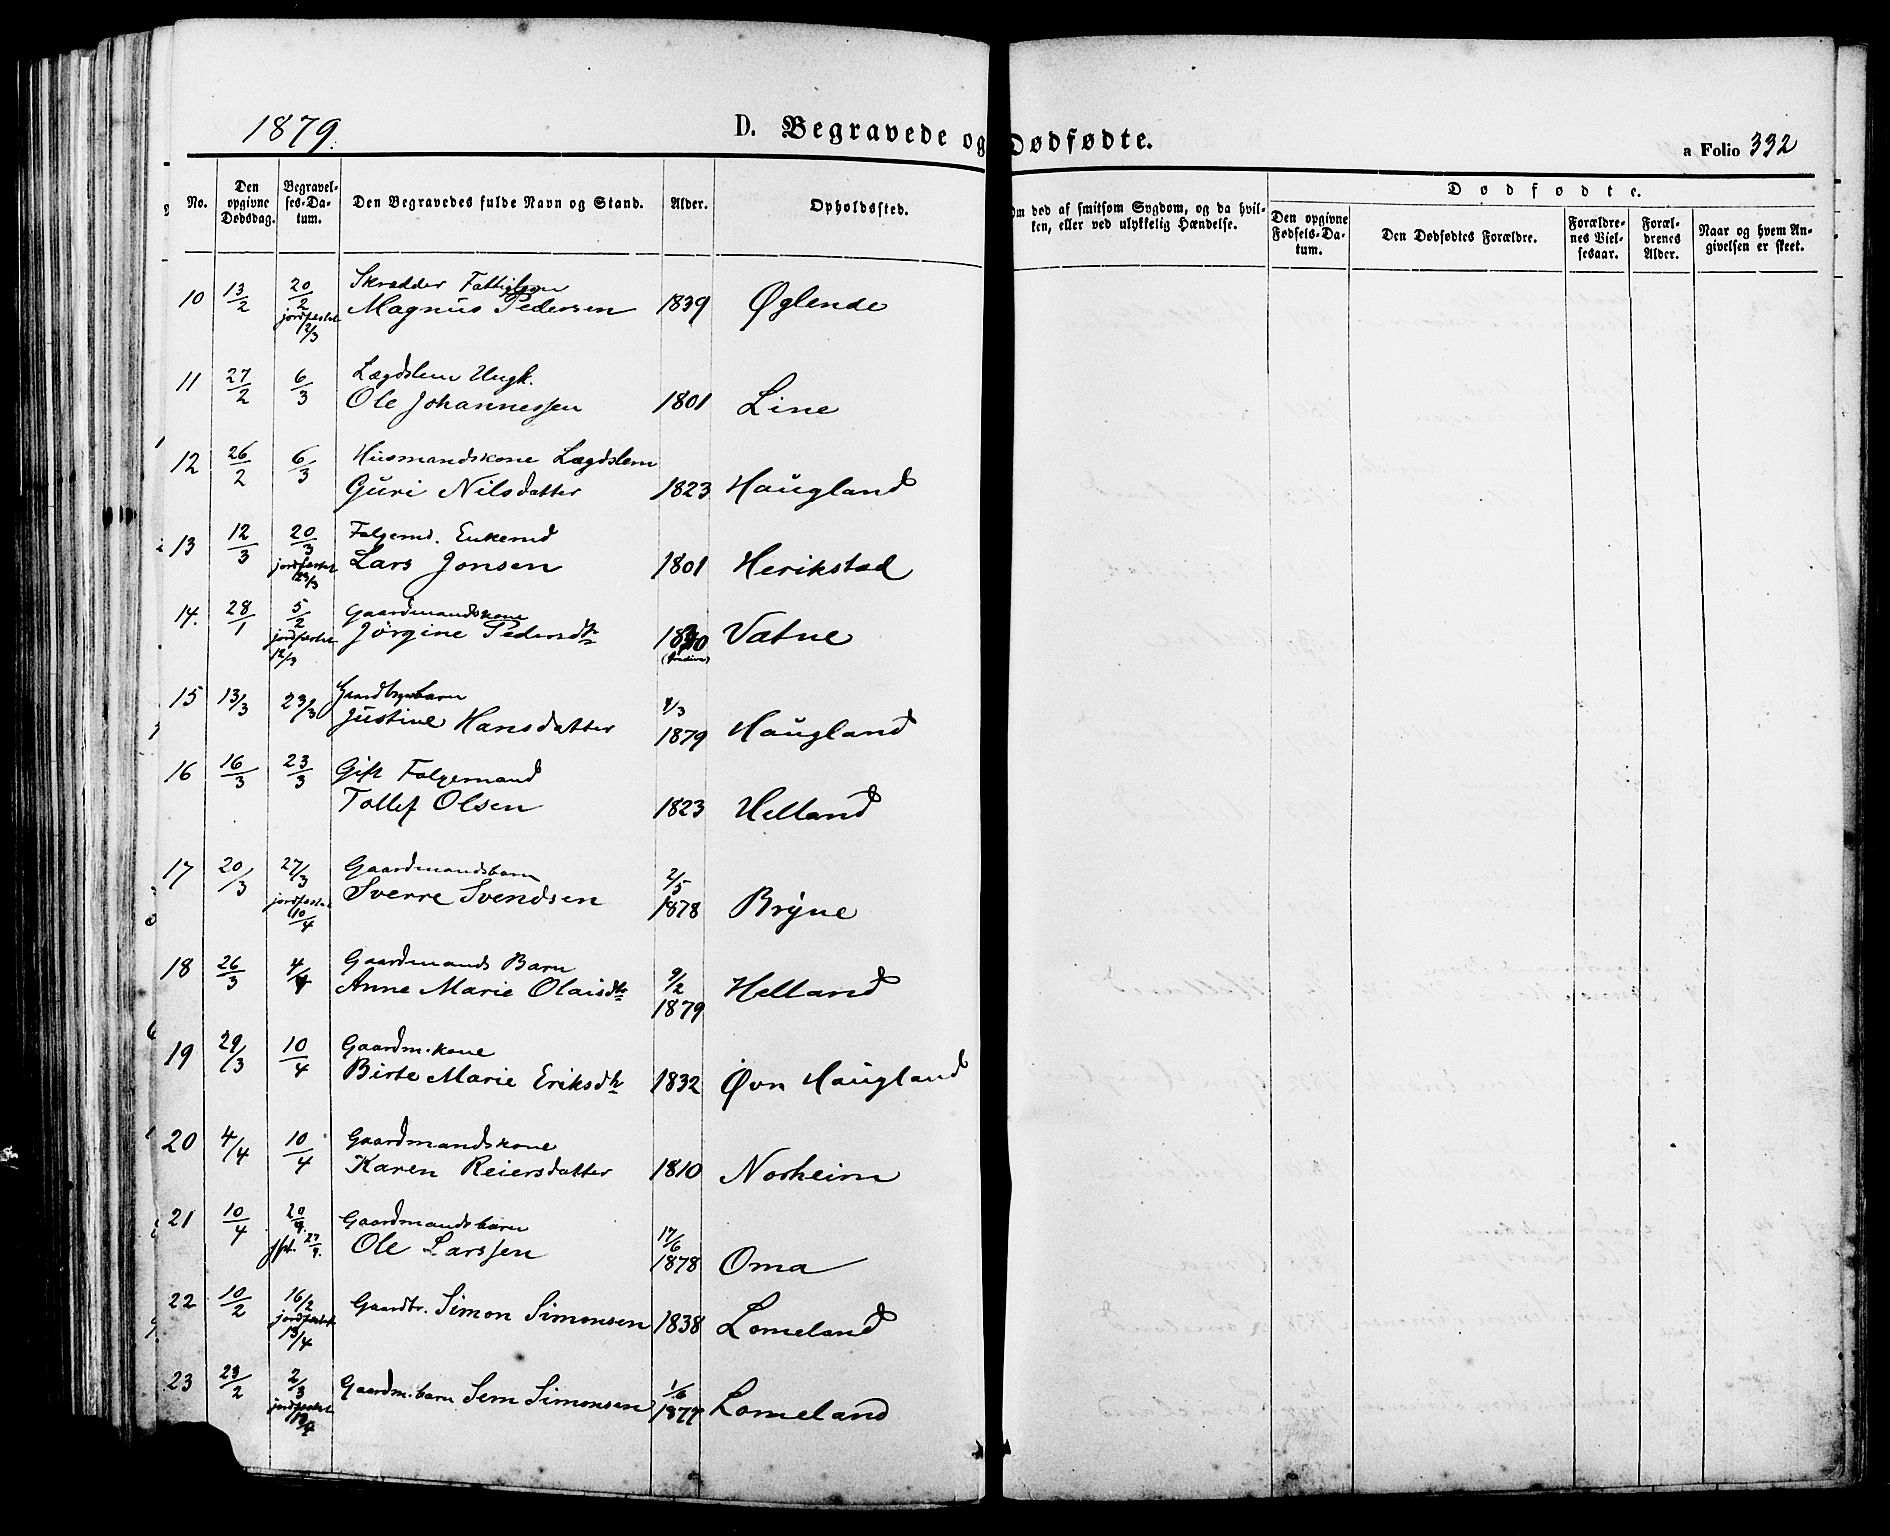 1879.
D. Begravede og Dødfødte.
a Folio 332
No.
Den opgivne Dødsdag.
Begravelses-Datum.
Den Begravedes fulde Navn og Stand.
Alder.
Opholdssted.
Om død af smitsom Sygdom, og da hvilken, eller ved ulykkelig Hændelse.
Dødfødte.
Den opgivne Fødsels-Datum.
Den Dødfødtes Forældre.
Forældrenes Vielsesaar.
Forældrenes Alder.
Naar og hvem Angivelsen er skeet.
10 13/2 20/2 jordfæstet 2/3 Skrædder
Magnus Pedersen 1839 Øglende
11 27/2 6/3 Lægdslem Ungk.
Ole Johannessen 1801 Line
12 26/2 6/3 Husmandskone Lægdslem
Guri Nilsdatter 1823 Haugland
13 12/3 20/3 jordfæstet 23/3 Folgemd. Enkemd
Lars Jonsen 1801 Herikstad
14. 28/1 5/2 jordfæstet 12/3 Gaardmandskone
Jørgine Pedersdtr Vatne
15 13/3 23/3
Justine Hansdatter 4/3 1879 Haugland
16 16/3 23/3 Gift Folgemand
Tollef Olsen 1823 Helland
17 20/3 27/3 jordfæstet 10/4 Gaardmandsbarn
Sverre Svendsen 2/5 1878 Bryne
18 26/3 4/4 Gaardmands Barn
Anne Marie Olaisdtr 9/2 1879 Helland
19 29/3 10/4 Gaardm.kone
Birte Marie Eriksdtr 1832 Øvn Haugland
20 4/4 10/4 Gaardmandskone
Karen Reiersdatter 1810 Norheim
21 10/4 20/4 jfst. 27/4. Gaardmandsbarn
Ole Larssen 17/6 1878 Oma
22 10/2 16/2 jordfæstet 13/4 Gaardbr. Simon Simonsen 1838 Lomeland
23 23/2 2/3 jordfæstet 13/4 Gaardm.barn Sem Simonsen 1/6 1877 Lomeland